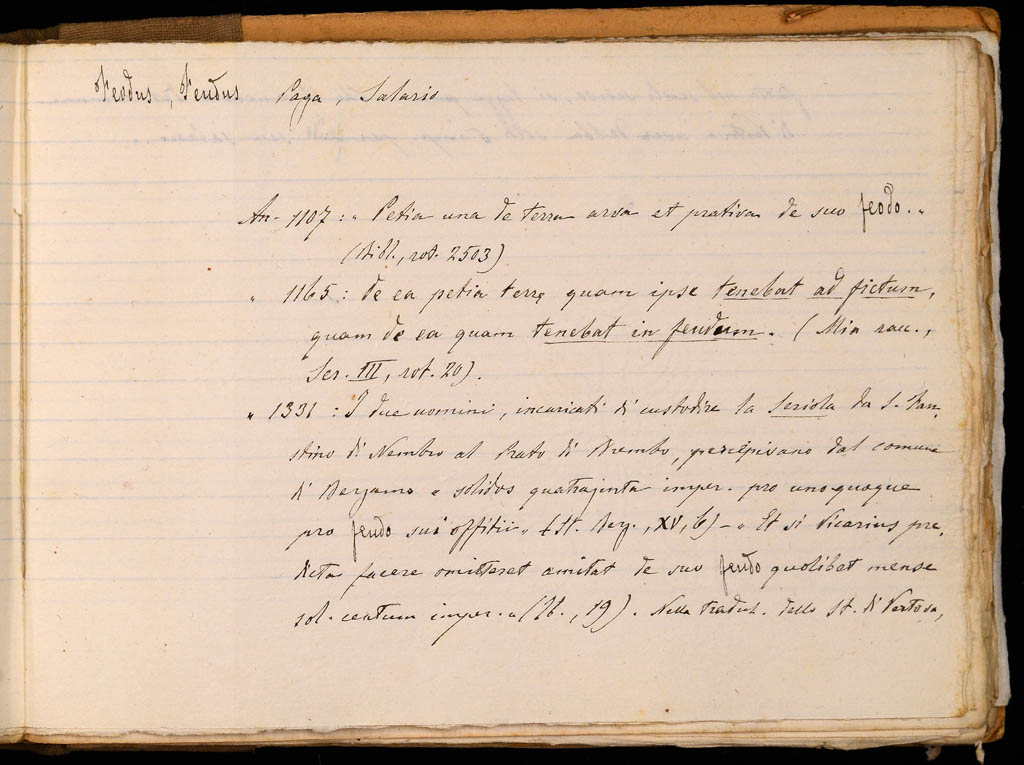 Feodus, Feudus Paga, Salario
An. 1107: " Petia una de terra arva et prativa de suo feodo. "
(Bibl., rot. 2503)
" 1165: de ea petia terrę quam ipse tenebat ad fictum,
quam de ea quam tenebat in feudum. (Mia rau.,
Ser. III, rot. 20).
" 1331: I due uomini, incaricati di custodire la Seriola da S. Fau-
stino di Nembro al Prato di Brembo, percepivano dal comune
di Bergamo " solidos quatraginta imper. pro unoquoque
pro feudo sui offitii " (St. Berg., XV, 6) - " Et si Vicarius pre-
dicta facere omitteret amitat de suo feudo quolibet mense
sol. centum imper. " (Ib., 19). Nella traduz. dello St. di Vertova,